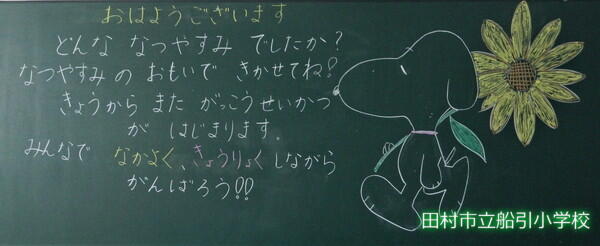 おはようございます
どんな なつやすみ でしたか？
なつやすみの おもいで きかせてね！
きょうから また がっこうせいかつ
が はじまります
みんなで なかよく、きょうりょく しながら
がんばろう！！
田村市立船引小学校